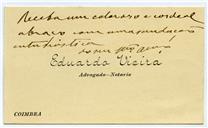 Receba um caloroso e cordeal
abraço com uma saudação
enthusiastica
do seu
Eduardo Vieira
Advogado-Notario
COIMBRA